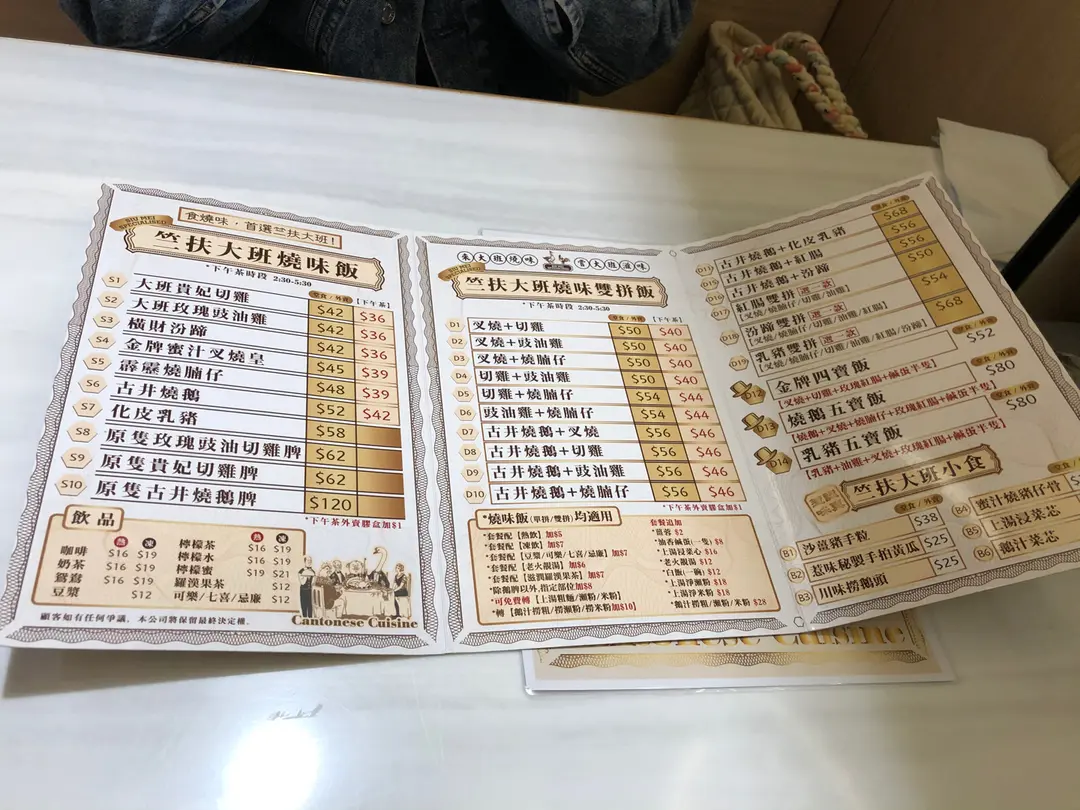 食燒味，首選竺扶大班！
SIU MEI SPECIALISED
竺扶大班燒味飯
*下午茶時段 2:30-5:30
堂食/外賣 【下午茶】
S1 大班貴妃切雞 $42 $36
S2 大班玫瑰豉油雞 $42 $36
S3 橫財汾蹄 $42 $36
S4 金牌蜜汁叉燒皇 $45 $39
S5 霹靂燒腩仔 $48 $39
S6 古井燒鵝 $52 $42
S7 化皮乳豬 $58
S8 原隻玫瑰豉油切雞脾 $62
S9 原隻貴妃切雞脾 $62
S10 原隻古井燒鵝脾 $120
*下午茶外賣膠盒加$1
飲品
熱 凍
咖啡 $16 $19
奶茶 $16 $19
鴛鴦 $16 $19
豆漿 $12
熱 凍
檸檬茶 $16 $19
檸檬水 $16 $19
檸檬蜜 $19 $21
羅漢果茶 $12
可樂/七喜/忌廉 $12
Cantonese Cuisine
顧客如有任何爭議，本公司將保留最終決定權。
來大班燒味 嘗大班滋味
SIU MEI SPECIALISED
竺扶大班燒味雙拼飯
*下午茶時段 2:30-5:30
堂食/外賣 【下午茶】
D1 叉燒+切雞 $50 $40
D2 叉燒+豉油雞 $50 $40
D3 叉燒+燒腩仔 $50 $40
D4 切雞+豉油雞 $50 $40
D5 切雞+燒腩仔 $54 $44
D6 豉油雞+燒腩仔 $54 $44
D7 古井燒鵝+叉燒 $56 $46
D8 古井燒鵝+切雞 $56 $46
D9 古井燒鵝+豉油雞 $56 $46
D10 古井燒鵝+燒腩仔 $56 $46
*下午茶外賣膠盒加$1
*燒味飯(單拼/雙拼)均適用
*套餐配【熱飲】加$5
*套餐配【凍飲】加$7
*套餐配【豆漿/可樂/七喜/忌廉】加$7
*套餐配【老火靚湯】加$6
*套餐配【滋潤羅漢果茶】加$7
*除鵝脾以外,指定部位加$8
*可免費轉【上湯粗麵/瀨粉/米粉】
*轉【鵝汁撈粗/撈瀨粉/撈米粉加$10】
套餐追加
*薑蓉 $2
*油香鹹蛋(一隻) $8
*上湯浸菜心 $16
*老火靚湯 $12
*白飯(一碗) $12
*上湯淨瀨粉 $18
*上湯淨米粉 $18
*鵝汁撈粗/瀨粉/米粉 $28
堂食/外賣
D11 古井燒鵝+化皮乳豬 $68
D15 古井燒鵝+紅腸 $56
D16 古井燒鵝+汾蹄 $56
D17 紅腸雙拼 選一款 $50
【叉燒/燒腩仔/切雞/油雞】
D18 汾蹄雙拼 選一款 $54
【叉燒/燒腩仔/切雞/油雞/紅腸】
D19 乳豬雙拼 選一款 $68
【叉燒/燒腩仔/切雞/油雞/紅腸/汾蹄】
堂食/外賣
D12 金牌四寶飯 $52
【叉燒+切雞+玫瑰紅腸+鹹蛋半隻】
D13 燒鵝五寶飯 $80
【燒鵝+叉燒+燒腩仔+玫瑰紅腸+鹹蛋半隻】
D14 乳豬五寶飯 $80
【乳豬+油雞+叉燒+玫瑰紅腸+鹹蛋半隻】
竺扶大班小食
堂食/外賣
B1 沙薑豬手粒 $38
B2 惹味秘製手拍黃瓜 $25
B3 川味撈鵝頭 $25
B4 蜜汁燒豬仔骨
B5 上湯浸菜芯
B6 鵝汁菜芯
Cantonese Cuisine